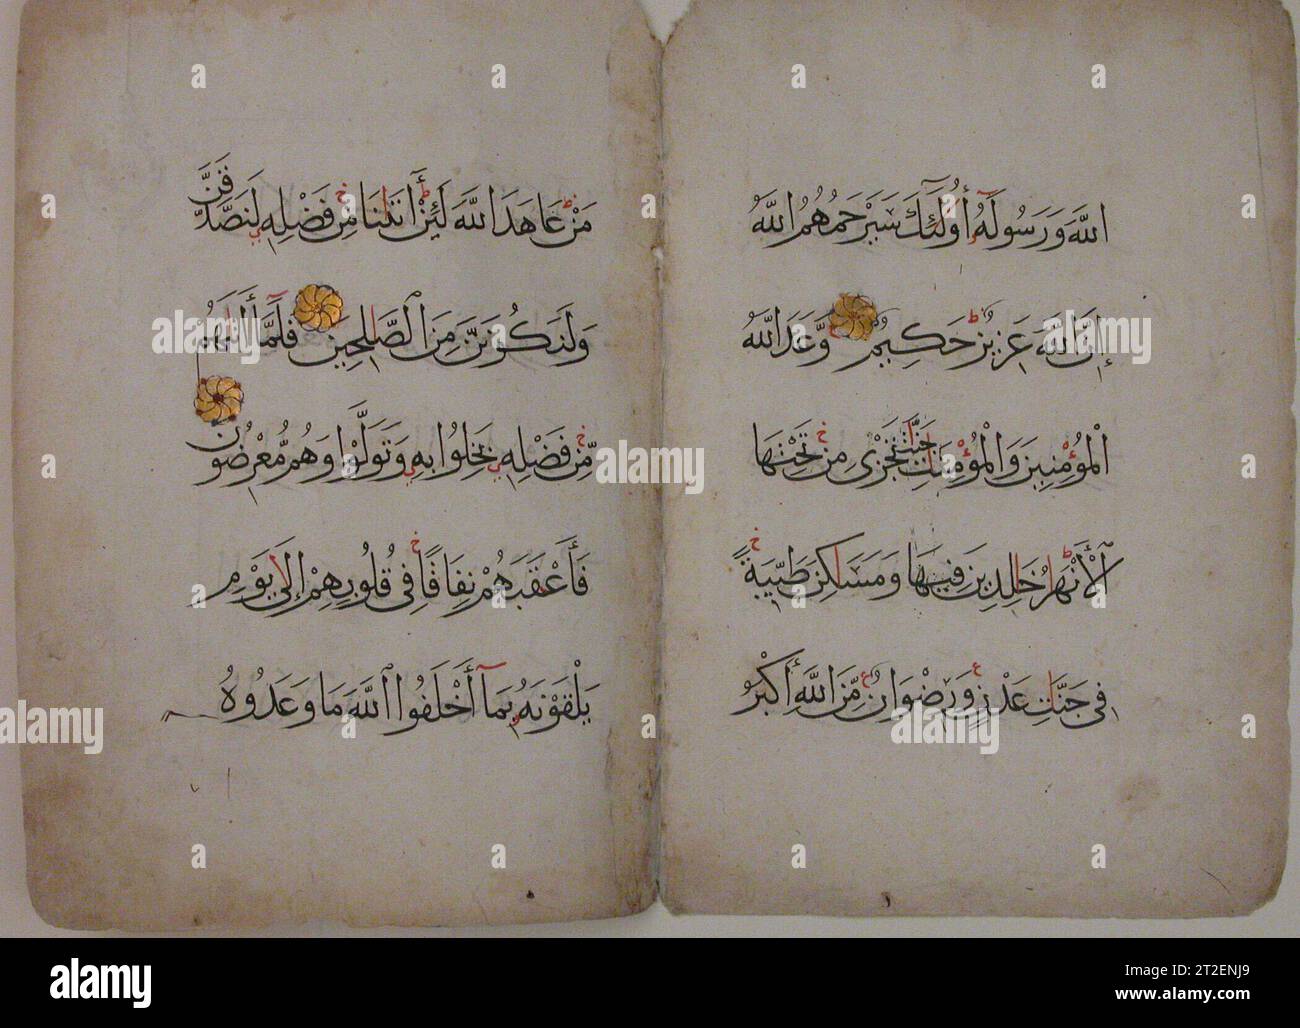 الله وَرَسُولَهُ أُولَٰئِكَ سَيَرْحَمُهُمُ اللهُ
إِنَّ اللهَ عَزِيزٌ حَكِيمٌ وَعَدَ اللهُ
الْمُؤْمِنِينَ وَالْمُؤْمِنَاتِ جَنَّاتٍ تَجْرِي مِنْ تَحْتِهَا
الْأَنْهَارُ خَالِدِينَ فِيهَا وَمَسَاكِنَ طَيِّبَةً
فِي جَنَّاتِ عَدْنٍ وَرِضْوَانٌ مِّنَ اللهِ أَكْبَرُ
مَنْ عَاهَدَ اللهَ لَئِنْ آتَانَا مِنْ فَضْلِهِ لَنَصَّدَّقَنَّ
وَلَنَكُونَنَّ مِنَ الصَّالِحِينَ فَلَمَّا آتَاهُمْ
مِّنْ فَضْلِهِ بَخِلُوا بِهِ وَتَوَلَّوْا وَهُمْ مُّعْرِضُونَ
فَأَعْقَبَهُمْ نِفَاقًا فِي قُلُوبِهِمْ إِلَىٰ يَوْمِ
يَلْقَوْنَهُ بِمَا أَخْلَفُوا اللهَ مَا وَعَدُوهُ
alamy
alamy
Image ID: 2T2ENJ9
www.alamy.com